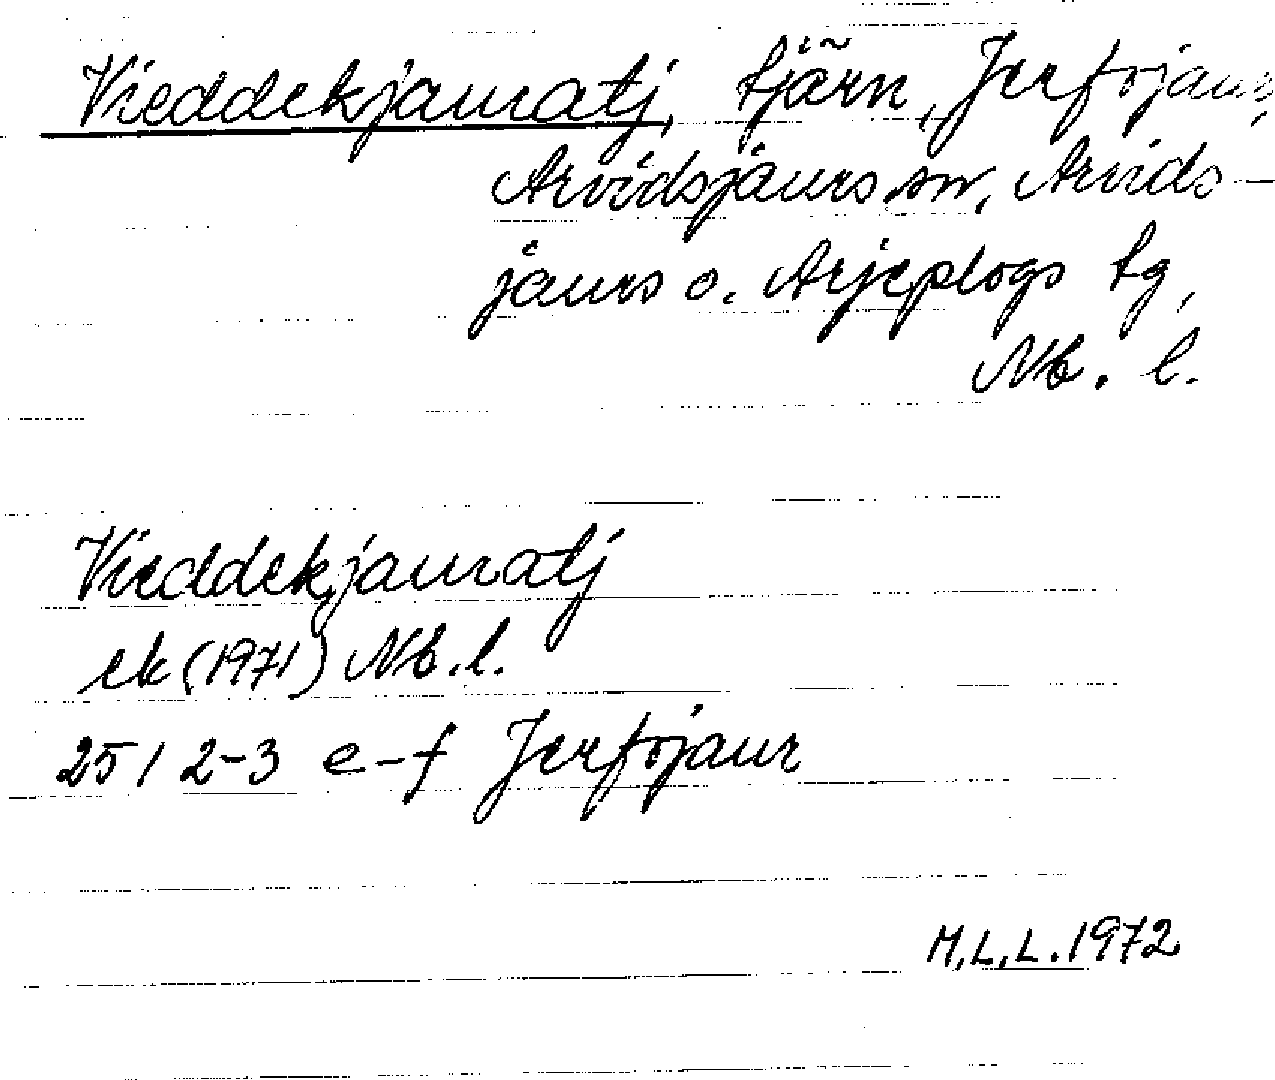 Vieddekjauratj, tjärn, Jerfojaur,
Arvidsjaurs sn, Arvids-
jaurs o. Arjeplogs tg,
Nb. l.
Vieddekjauratj
ek (1971) Nb. l.
25 I 2-3 e-f Jerfojaur
M.L.L. 1972